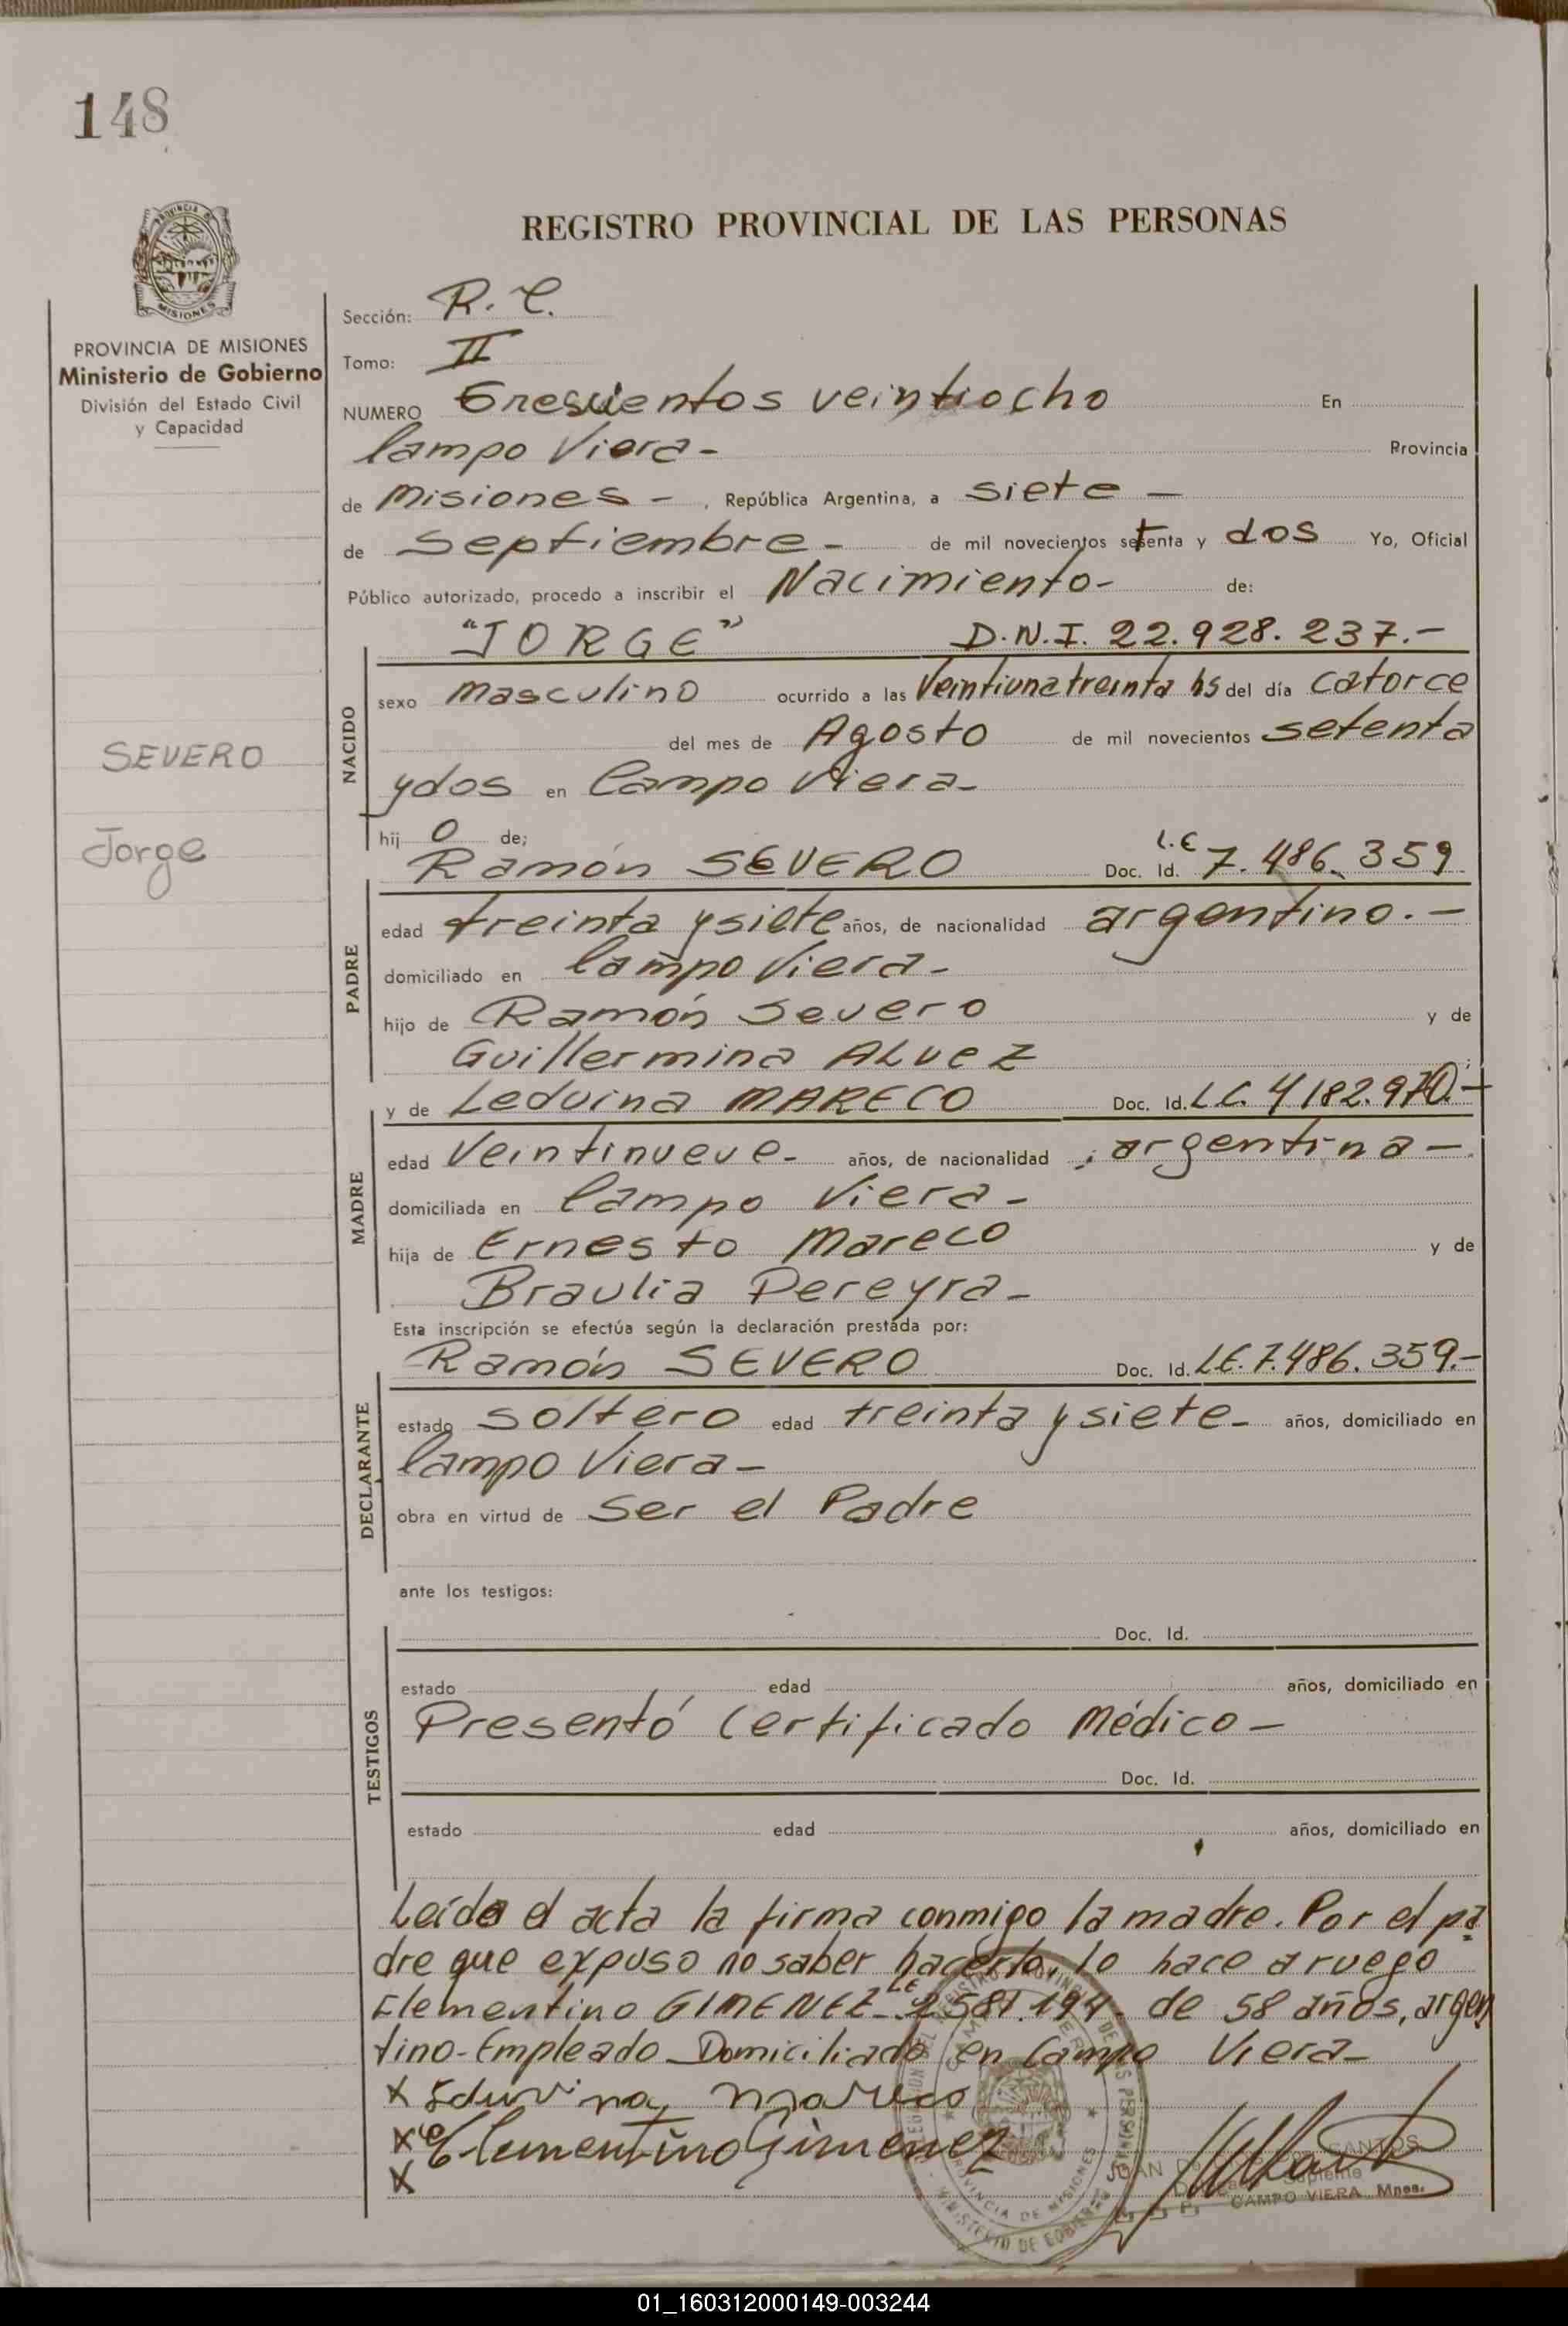 148
REGISTRO PROVINCIAL DE LAS PERSONAS
PROVINCIA DE MISIONES
Ministerio de Gobierno
División del Estado Civil
y Capacidad
SEVERO
Jorge
Sección: R. C.
Tomo: II
NUMERO Trescientos veintiocho En
Campo Viera - Provincia
de Misiones - , República Argentina, a siete -
de Septiembre - de mil novecientos setenta y dos Yo, Oficial
Público autorizado, procedo a inscribir el Nacimiento - de:
"JORGE" D.N.I. 22.928.237.-
NACIDO
sexo masculino ocurrido a las Veintiuna treinta hs del día catorce
del mes de Agosto de mil novecientos setenta
y dos en Campo Viera -
hij o de;
Ramón SEVERO Doc. Id. L.E 7.486.359
PADRE
edad treinta y siete años, de nacionalidad argentino. -
domiciliado en Campo Viera -
hijo de Ramón Severo y de
Guillermina ALVEZ ;
y de Leduina MARECO Doc. Id. L.C. 4182.970.-
MADRE
edad Veintinueve - años, de nacionalidad argentina -
domiciliada en Campo Viera -
hija de Ernesto Mareco y de
Braulia Pereyra -
Esta inscripción se efectúa según la declaración prestada por:
Ramón SEVERO Doc. Id. LE. 7.486.359.-
DECLARANTE
estado soltero edad treinta y siete - años, domiciliado en
Campo Viera -
obra en virtud de Ser el Padre
ante los testigos:
TESTIGOS
Doc. Id.
estado edad años, domiciliado en
Presentó Certificado Médico -
Doc. Id.
estado edad años, domiciliado en
Leída el acta la firma conmigo la madre. Por el pa
dre que expuso no saber hacerlo, lo hace a ruego
Clementino GIMENEZ - LE 2581.194 - de 58 años, argen
tino - Empleado - Domiciliado en Campo Viera -
x Eduvina Mareco
x Clementino Gimenez
x
CAMPO VIERA Mnes.
01_160312000149-003244